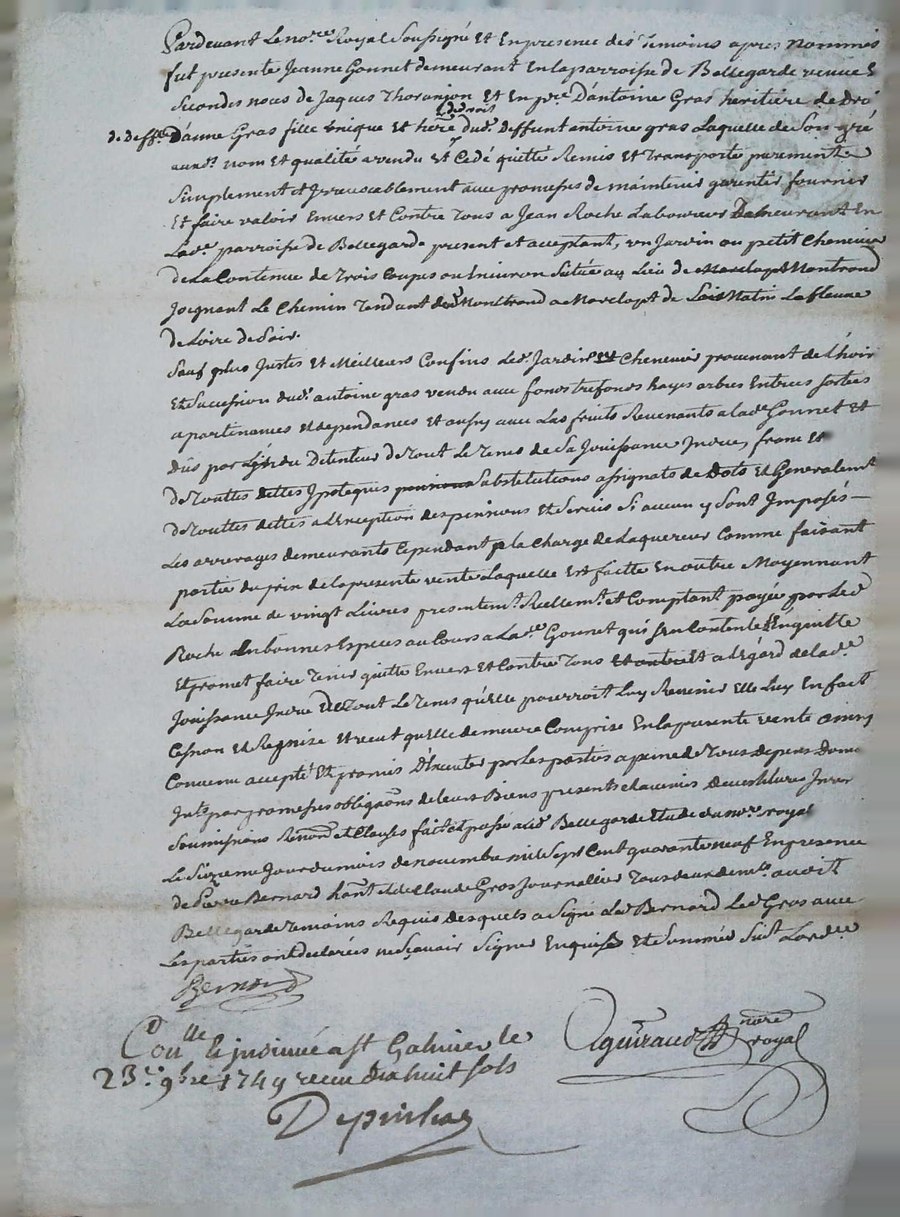 Pardevant Le no.re Royal Soussigné Et En presence des Temoins apres Nommés
fut presente Jeanne Gonnet demeurant En la parroisse de Bellegarde veuve E
Secondes noces de Jaques Thoranjon Et En p.re D'antoine Gras heritiere de Dro
& de droit
de deff.te D'anne Gras fille Unique et here dud. deffunt antoine gras Laquelle de Son gré
auxd. nom et qualité a vendu et Cedé quitté Remis et Transporté purement
Simplement et Irrevocablement avec promesses de maintenir garentir fournir
Et faire valoir Envers et Contre Tous a Jean Roche Laboureur Demeurant En
Lad.e parroisse de Bellegarde present et acceptant, un Jardin ou petit Chenevier
de La Contenue de Trois Coupes ou Environ Situé au Lieu de Montrond
Joignant Le Chemin Tendant de Montrond a de Matin La fleuve
de Loire de Soir.
Sauf plus Justes et Meilleurs Confins Led. Jardin Chenevier provenant de L'hoir
Et Succession dud. antoine gras vendu avec fonds trefonds hays arbres Entrées Sorties
apartenances et dependances Et aussy avec Les fruits Revenants a lad. Gonnet Et
dûs par L'Indu Detenteur de Tout Le Tems de Sa Jouissance Indue, franc et
de Touttes dettes Ypoteques Substitutions assignats de Dots et Generalem.t
de Touttes dettes a L'Exception des pensions Et Servis Si aucun y Sont Imposés
Les arrerages demeurants Cependant a la Charge de Laquereur Comme faisant
partie du prix de la presente vente Laquelle Est faitte En outre Moyennant
La Somme de vingt Livres presentem.t Reellem.t et Comptant payée par Led
Roche En bonnes Especes au Cours a La d.e Gonnet qui S'en Contente L'En quitte
Et promet faire Tenir quitte Envers Et Contre Tous Et a L'Egard de lad.e
Jouissance Indue de Tout Le Tems qu'Elle pourroit Luy Revenir Elle Luy En fait
Cession et veut qu'elle demeure Comprise En la presente vente ainsy
Convenu accepté Et promis D'Executer par Les parties a peine de Tous depens Dom
Int.s par promesses obligaons de leurs Biens presents & avenirs
Soumissions Renon.s et Clauses fait et passé aud. Bellegarde Etude du no.re royal
Le Jour du mois de novembre mil Sept Cent quarante neuf En presence
de Pierre Bernard & de Claude Gros Journallier Tous deux dem.ts aud.it
Bellegarde Temoins Requis desquels a Signé Led. Bernard Led. Gros avec
Les parties ont declarées ne Sçavoir Signer Enquises Et Sommés
Bernard
Con.lle & insinué a St Galmier le
23.e 9bre 1749 receu dix huit sols
Aguiraud no.re royal
Depinhac